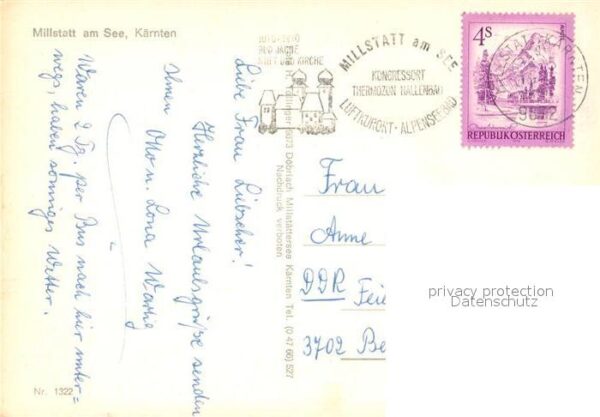 Millstatt am See, Kärnten
Liebe Frau Lübscher!
Herzliche Urlaubsgrüße senden
Ihnen
Otto u. Lona
Waren 2 Tg. per Bus nach hier unter-
wegs, haben sonniges Wetter.
Nr. 1322
9873 Döbriach Millstättersee Kärnten Tel. (0 47 66) 527
Nachdruck verboten
1070-1970
900 JAHRE
STIFT UND KIRCHE
MILLSTATT am SEE
KONGRESSORT
THERMOZON HALLENBAD
LUFTKURORT - ALPENSEEBAD
4S
REPUBLIK ÖSTERREICH
9872
Frau
Anne
DDR Fei
3702 Be
privacy protection
Datenschutz